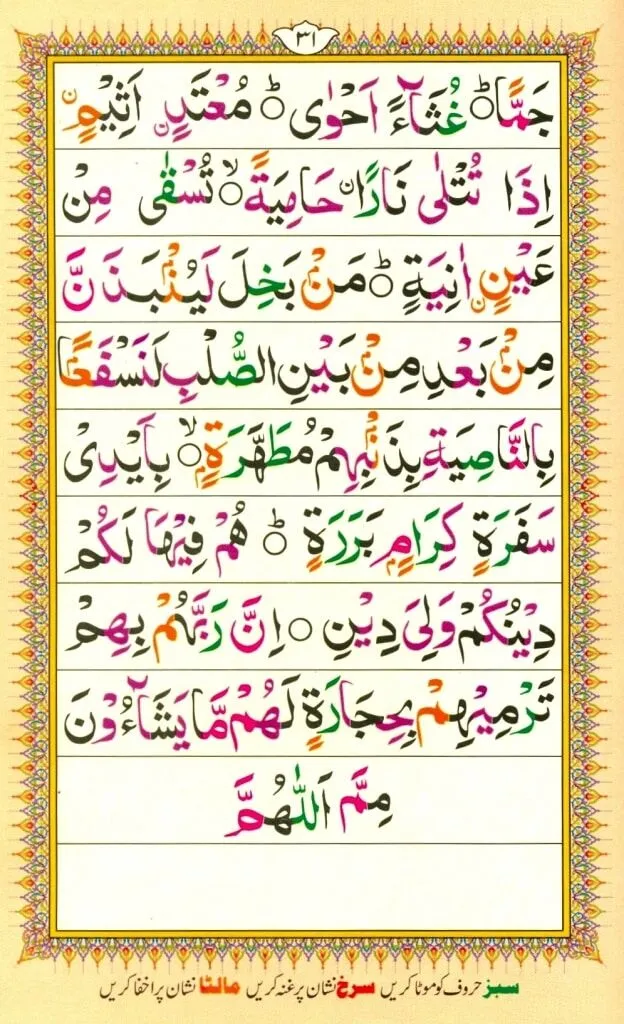 ۳۱
جَمًّا ؕ غُثَآءً اَحْوٰى ؕ مُعْتَدٍ اَثِيْمٍ
اِذَا تُتْلٰى نَارًا حَامِيَةً ۙ تُسْقٰى مِنْ
عَيْنٍ اٰنِيَةٍ ؕ مَنْۢ بَخِلَ لَيُنْۢبَذَنَّ
مِنْۢ بَعْدِ مِنْۢ بَيْنِ الصُّلْبِ لَنَسْفَعًۢا
بِالنَّاصِيَةِ بِذَنْۢبِهِمْ مُطَهَّرَةٍۭ ۙ بِاَيْدِىْ
سَفَرَةٍ كِرَامٍۭ بَرَرَةٍ ؕ هُمْ فِيْهَا لَكُمْ
دِيْنُكُمْ وَلِىَ دِيْنِ ○ اِنَّ رَبَّهُمْ بِهِمْ
تَرْمِيْهِمْ بِحِجَارَةٍ لَهُمْ مَّا يَشَآءُوْنَ
مِمَّ اَللّٰهُمَّ
سبز حروف کو موٹا کریں سرخ نشان پر غنہ کریں مالٹا نشان پر اخفا کریں